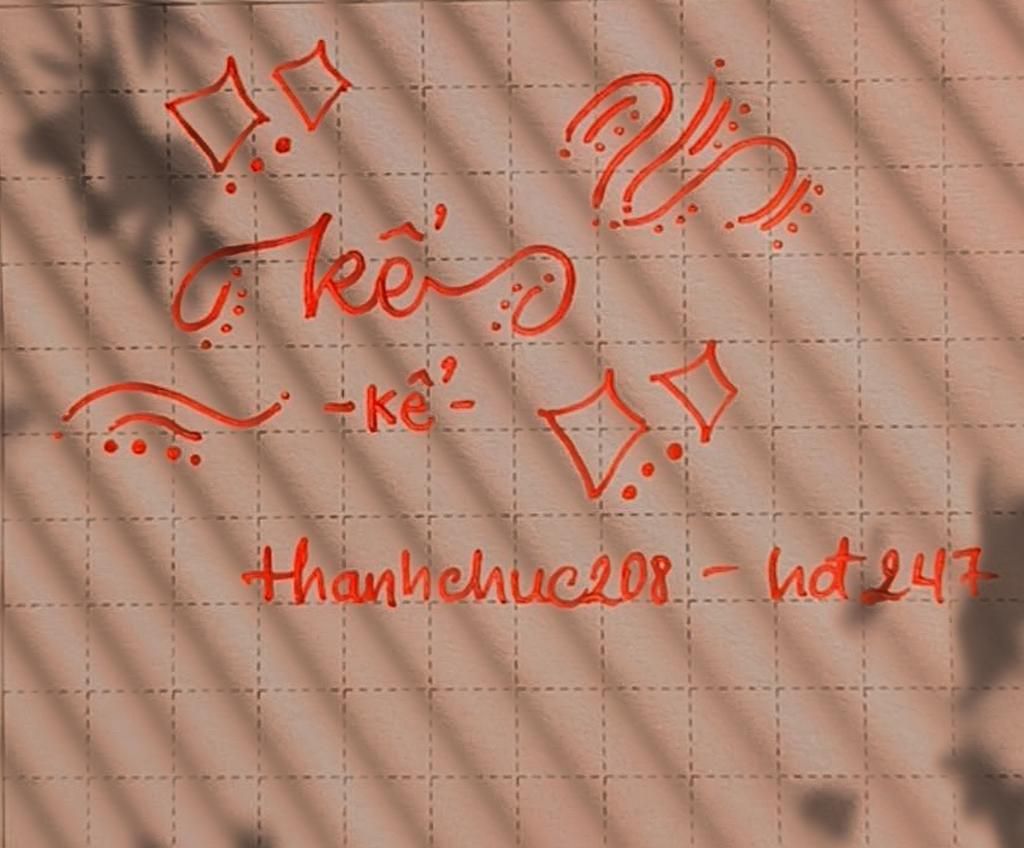 kể
-kể-
thanhchuc208 - hdt247